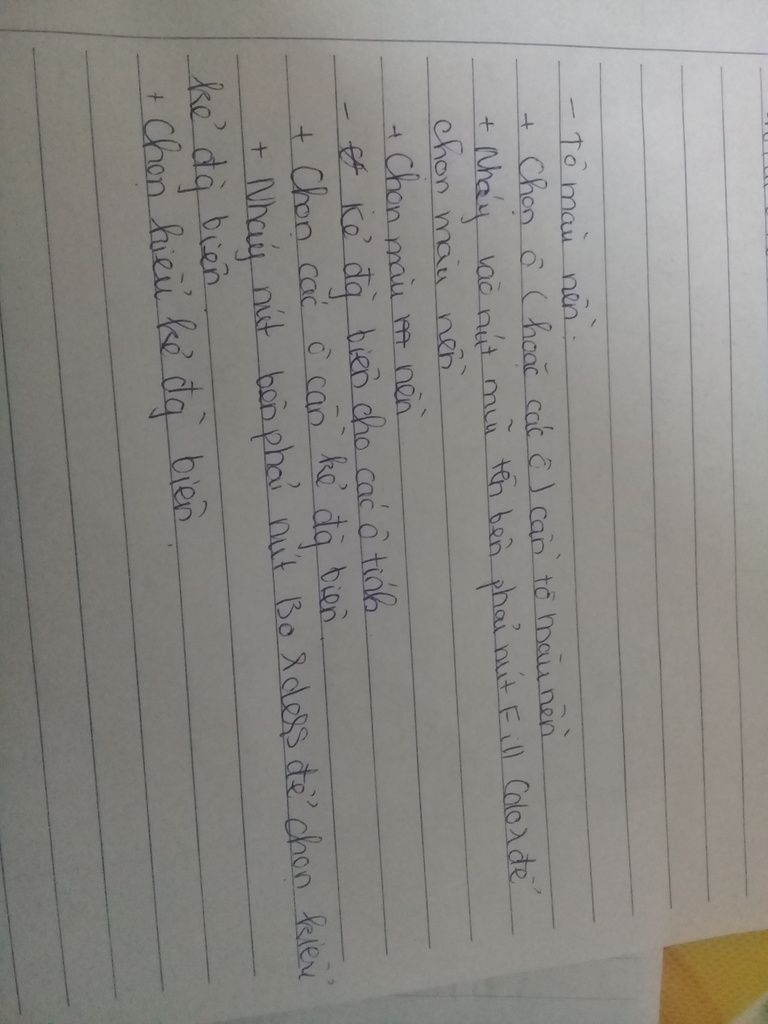 - Tô màu nền.
+ Chọn ô (hoặc các ô) cần tô màu nền
+ Nháy vào nút mũi tên bên phải nút Fill Color để
chọn màu nền
+ Chọn màu nền
- Kẻ đg biên cho các ô tính
+ Chọn các ô cần kẻ đg biên
+ Nháy nút bên phải nút Borders để chọn kiểu
kẻ đg biên
+ Chọn kiểu kẻ đg biên.